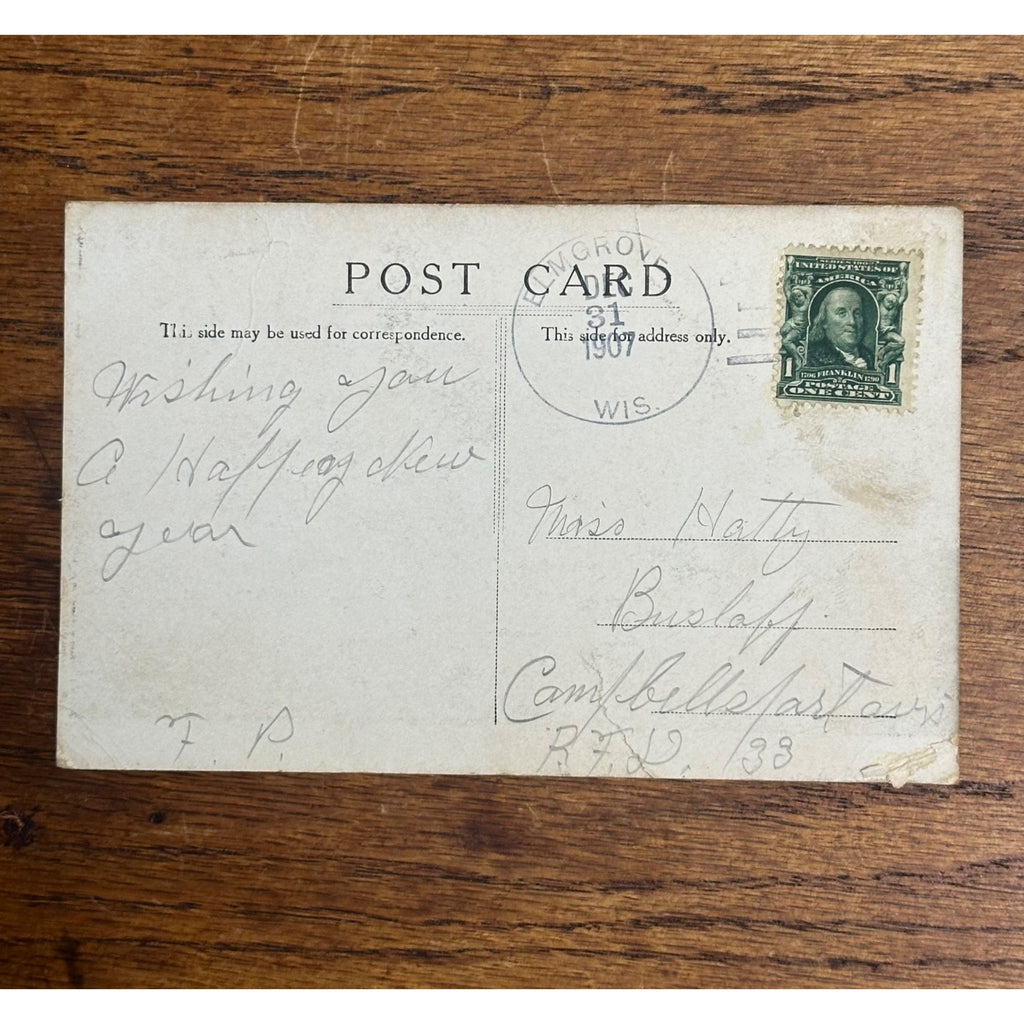 POST CARD
This side may be used for correspondence.
This side for address only.
ELMGROVE
DEC
31
1907
WIS.
SERIES 1902
UNITED STATES OF
AMERICA
1706 FRANKLIN 1790
1 POSTAGE 1
ONE CENT
Wishing you
A Happey New
year
F. P.
Miss Hatty
Buslaff.
Campbellsport Wis
R.F.D. 33